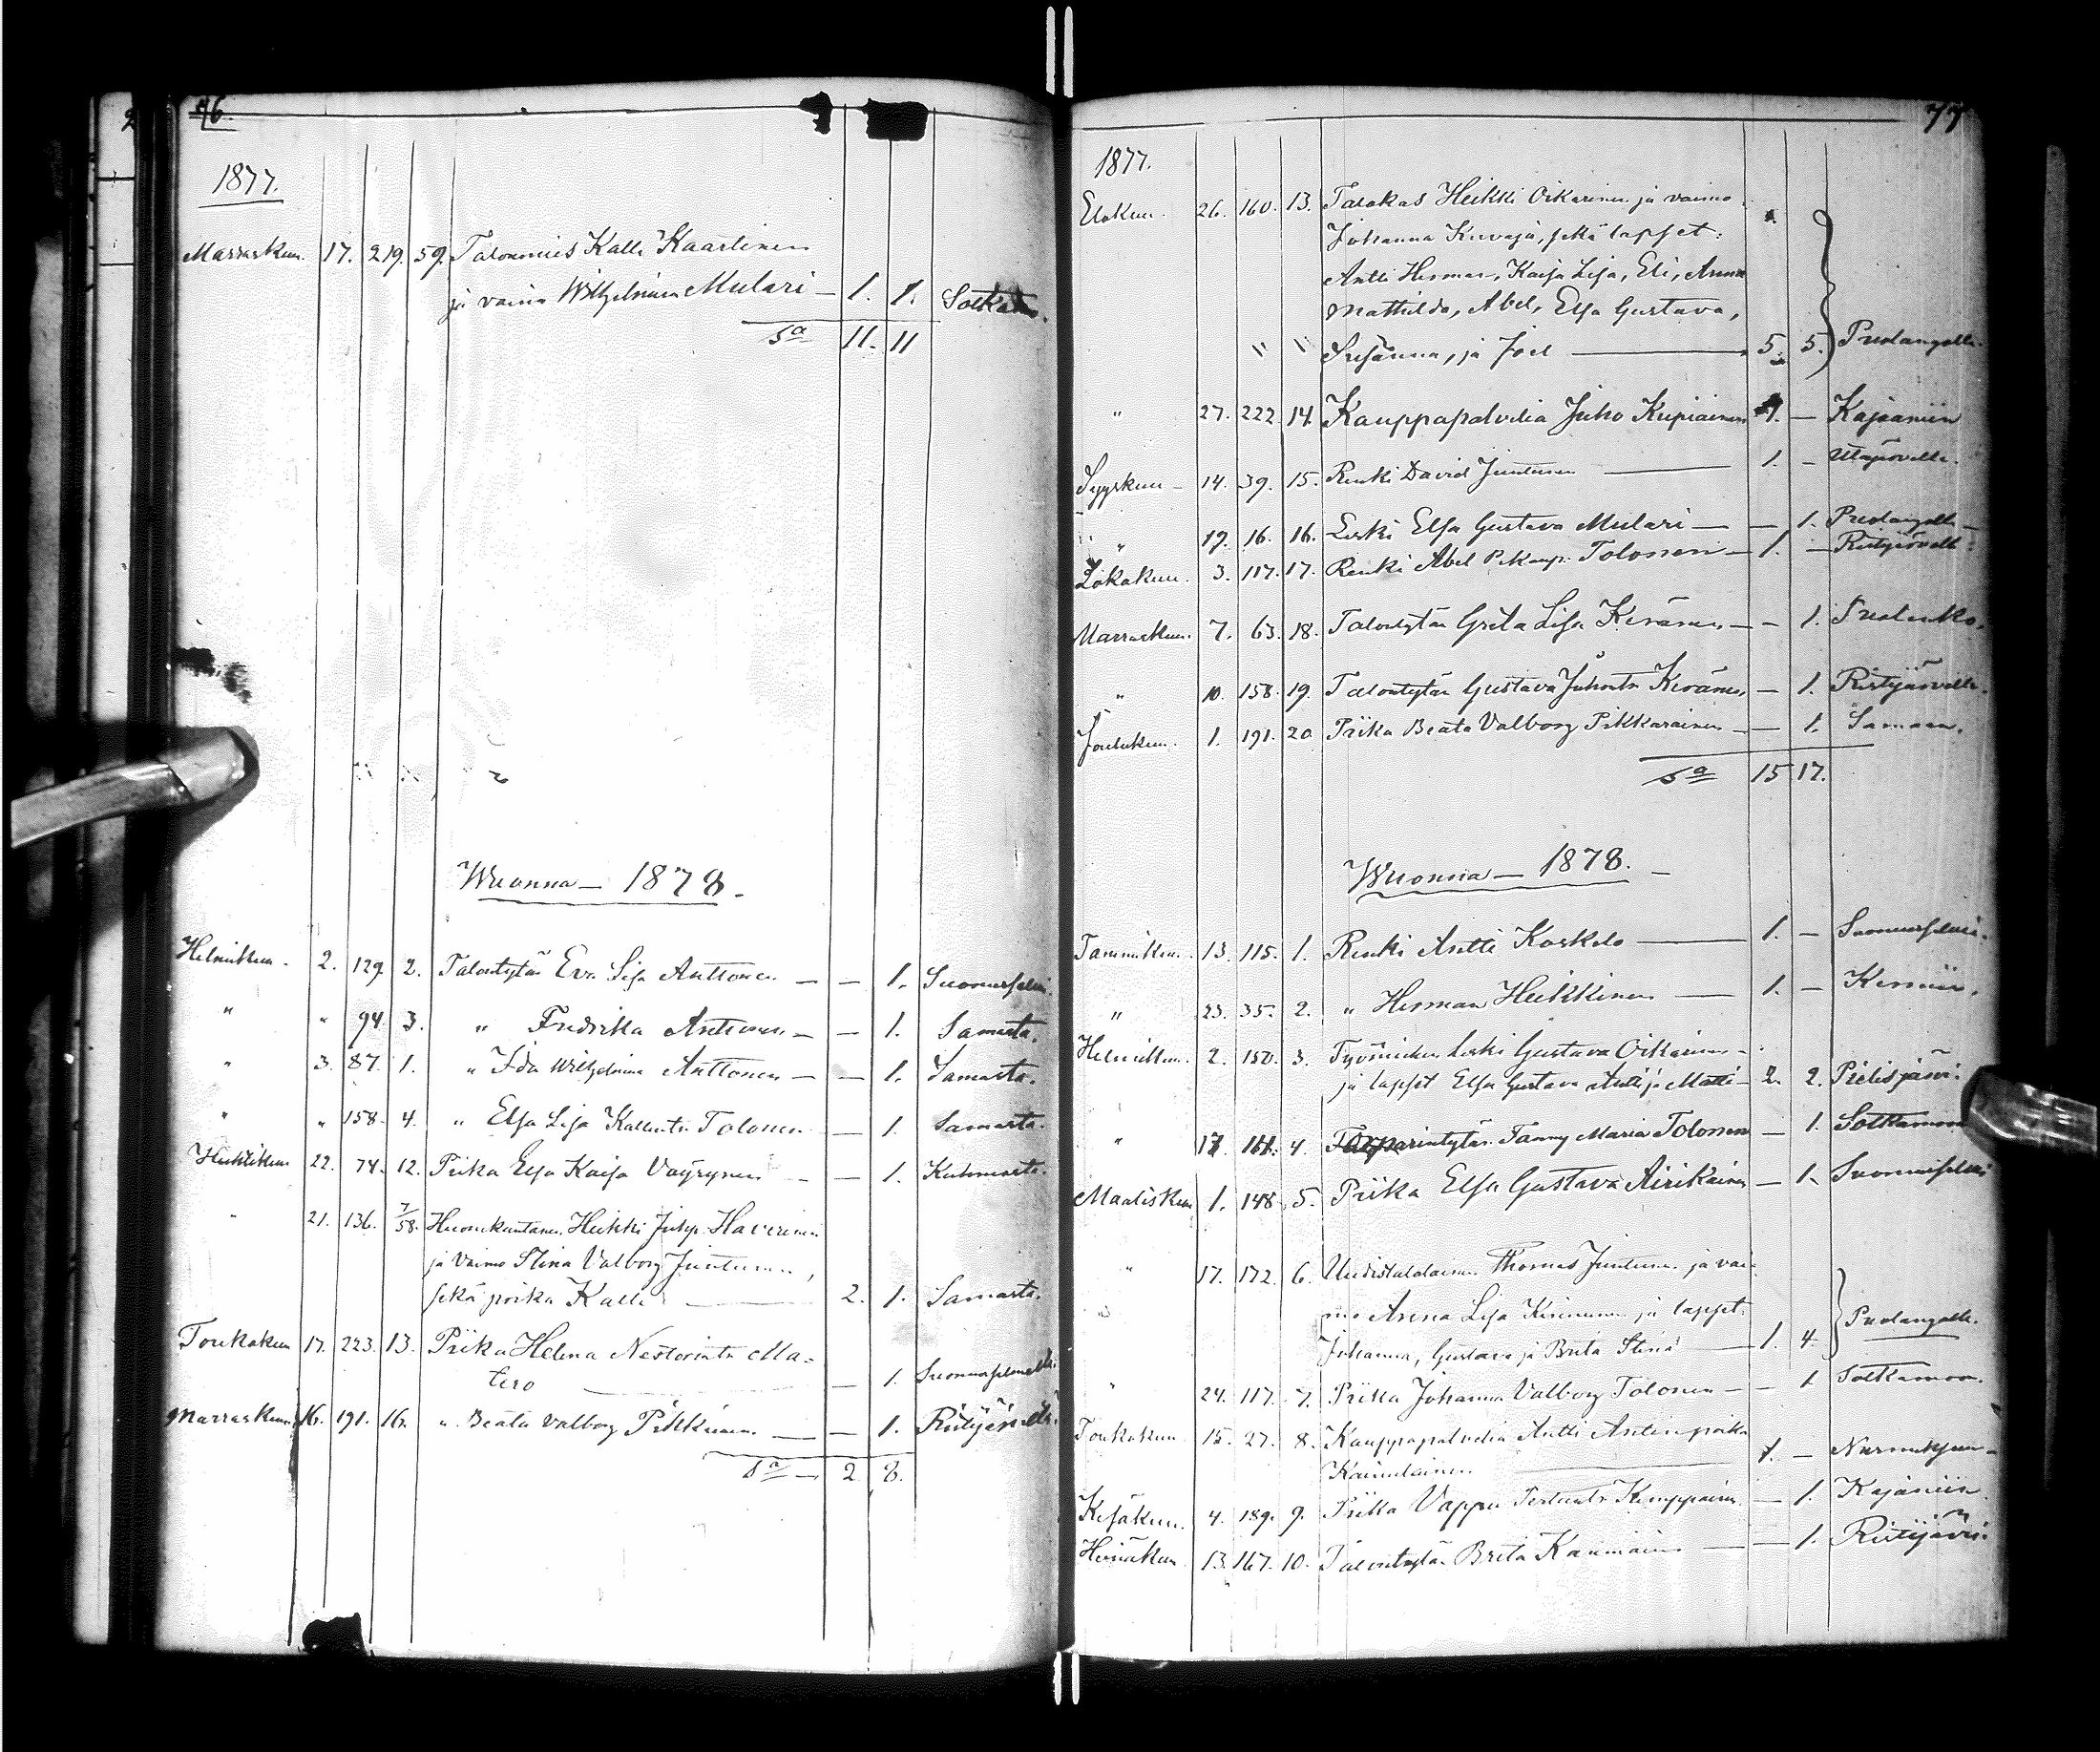 76.
1877.
Marraskuu. 17. 219. 59. Talonmies Kalle Kaartinen
ja vaimo Wilhelmiina Mulari — 1. 1. Sotkamo.
Sa 11. 11
Wuonna — 1878.
Helmikuu. 2. 129. 2. Talontytär Eva Lisa Anttonen — — 1. Suomussalmi.
" " 94. 3. " Fredrika Anttonen — — 1. Samasta.
" 3. 87. 1. " Ida Wilhelmina Anttonen — — 1. Samasta.
" " 158. 4. " Elsa Lisa Kallentr Tolonen — 1. Samasta.
Huhtikuu 22. 74. 12. Piika Elsa Kaisa Väyrynen — — 1. Kuhmosta.
" 21. 136. 7/58. Huonekuntainen Heikki Juhp. Haverinen
ja vaimo Stina Valborg Juntunen,
sekä poika Kalle — 2. 1. Samasta.
Toukokuu 17. 223. 13. Piika Helena Nestorintr Ma-
tero — — 1. Suomussalmelta.
Marraskuu. 16. 191. 16. " Beata Valborg Pikkarainen — — 1. Ristijärveltä.
Sa — 2. 8.
77
1877.
Elokuu. 26. 160. 13. Talokas Heikki Oikarinen ja vaimo
Johanna Kuvaja, sekä lapset:
Antti Herman, Kaisa Lisa, Eli, Anna
Mathilda, Abel, Elsa Gustava,
" " Susanna, ja Joel — 5. 5. Puolangalle.
" 27. 222. 14. Kauppapalvelia Juho Kupiainen 1. — Kajaaniin
Syyskuu — 14. 39. 15. Renki David Juntunen — 1. — Utajärvelle.
" 19. 16. 16. Leski Elsa Gustava Mulari — — 1. Puolangalle —
Lokakuu. 3. 117. 17. Renki Abel P.kaup. Tolonen — 1. — Ristijärvelle.
Marraskuu. 7. 63. 18. Talontytär Greta Lisa Keränen — — 1. Puolanko.
" 10. 158. 19. Talontytär Gustava Juhontr Keränen, — 1. Ristijärvelle.
Joulukuu. 1. 191. 20 Piika Beata Valborg Pikkarainen — — 1. Samaan.
Sa 15 17.
Wuonna — 1878. —
Tammikuu. 13. 115. 1. Renki Antti Koskelo — 1. — Suomussalmi.
" 23. 35. 2. " Herman Heikkinen — 1. — Kemiin.
Helmikuu. 2. 150. 3. Työmiehen leski Gustava Oikarinen —
ja lapset Elsa Gustava Antti ja Matti — 2. 2. Pielisjärvi.
" 17. 161. 4. Torpparintytär Fanny Maria Tolonen — 1. Sotkamoon
Maaliskuu 1. 148. 5. Piika Elsa Gustava Äirikäinen — 1. Suomussalmi
" 17. 172. 6. Uudistalolainen Thomas Juntunen ja vai-
mo Anna Lisa Kinnunen ja lapset:
Johanna, Gustava ja Brita Stina — 1. 4. Puolangalle.
" 24. 117. 7. Piika Johanna Valborg Tolonen — — 1. Sotkamoon.
Toukokuu 15. 27. 8. Kauppapalvelia Antti Antinpoika
Kainulainen — 1. — Nurmekseen —
Kesäkuu. 4. 189. 9. Piika Vappu Pertuntr Kemppainen — 1. Kajaaniin
Heinäkuu 13. 167. 10. Talontytär Brita Karjalainen — — 1. Ristijärvi.